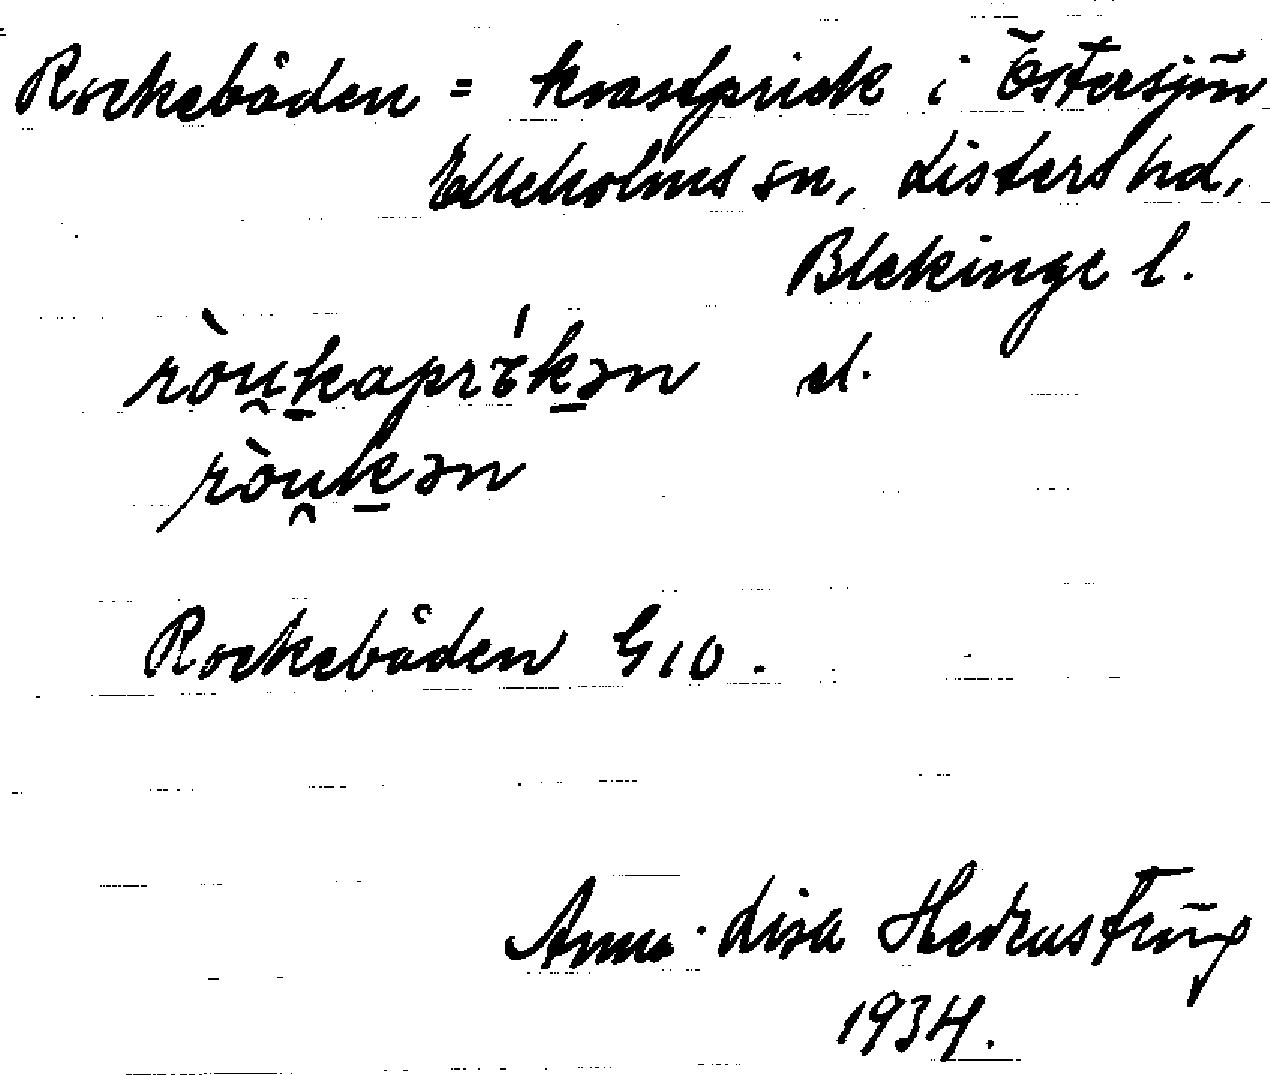 Rockebåden = kvastprick i Östersjön
Elleholms sn, Listers hd,
Blekinge l.
ròu̯k̠aprɩ́k̠ən el.
ròu̯k̠ən
Rockebåden G10.
Anna-Lisa Hedenström
1934.